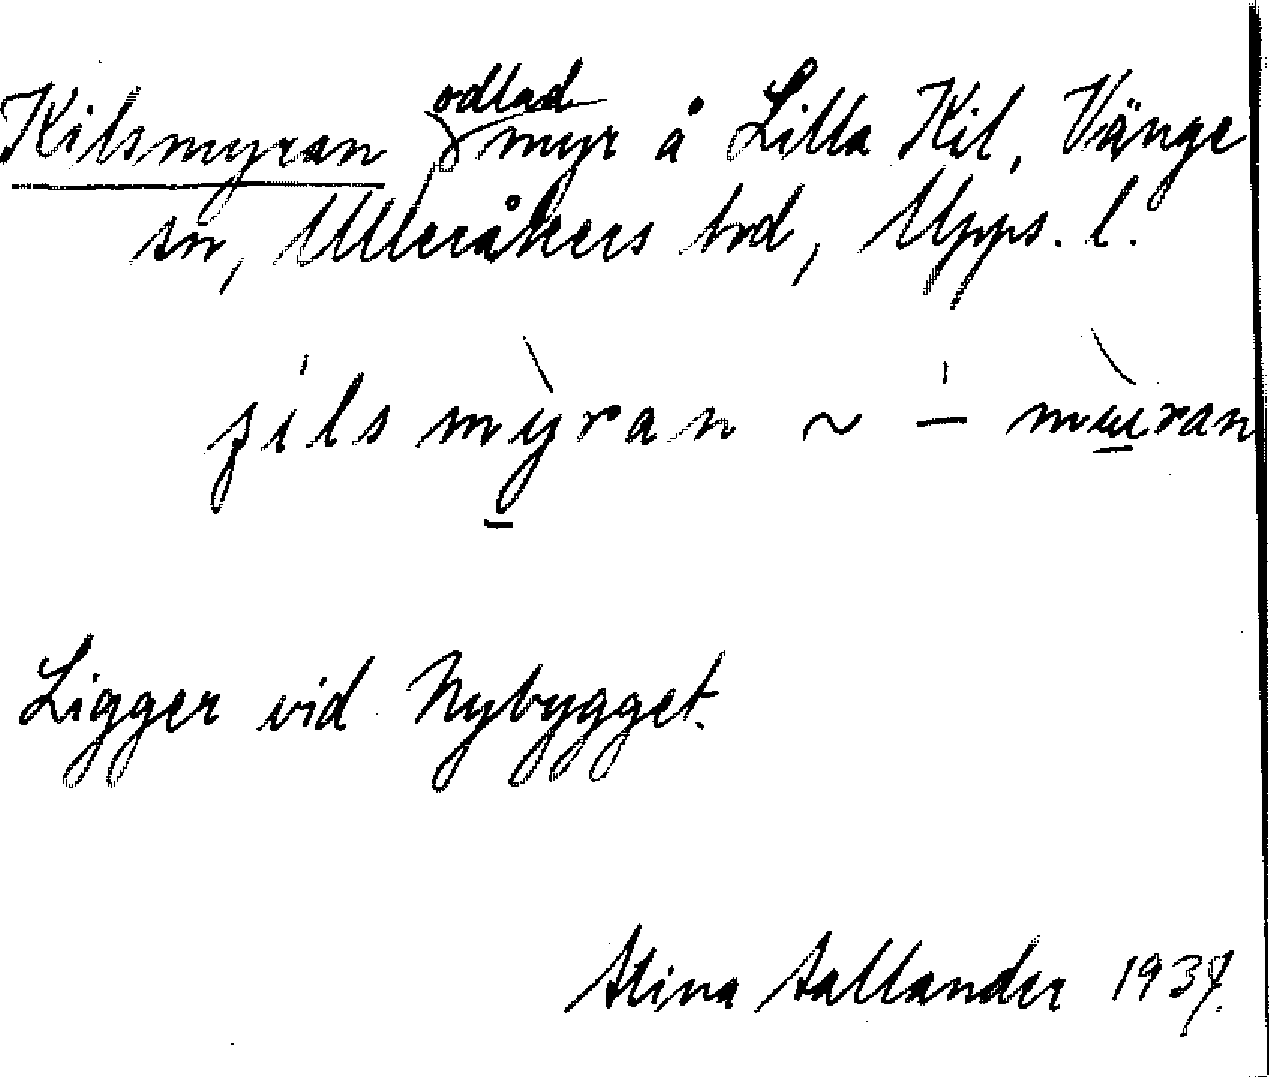 Kilsmyran odlad myr å Lilla Kil, Vänge
sn, Ulleråkers hd, Upps. l.
jils mỳran ~ – mɯ̀ran
Ligger vid Nybygget.
Stina 1937.